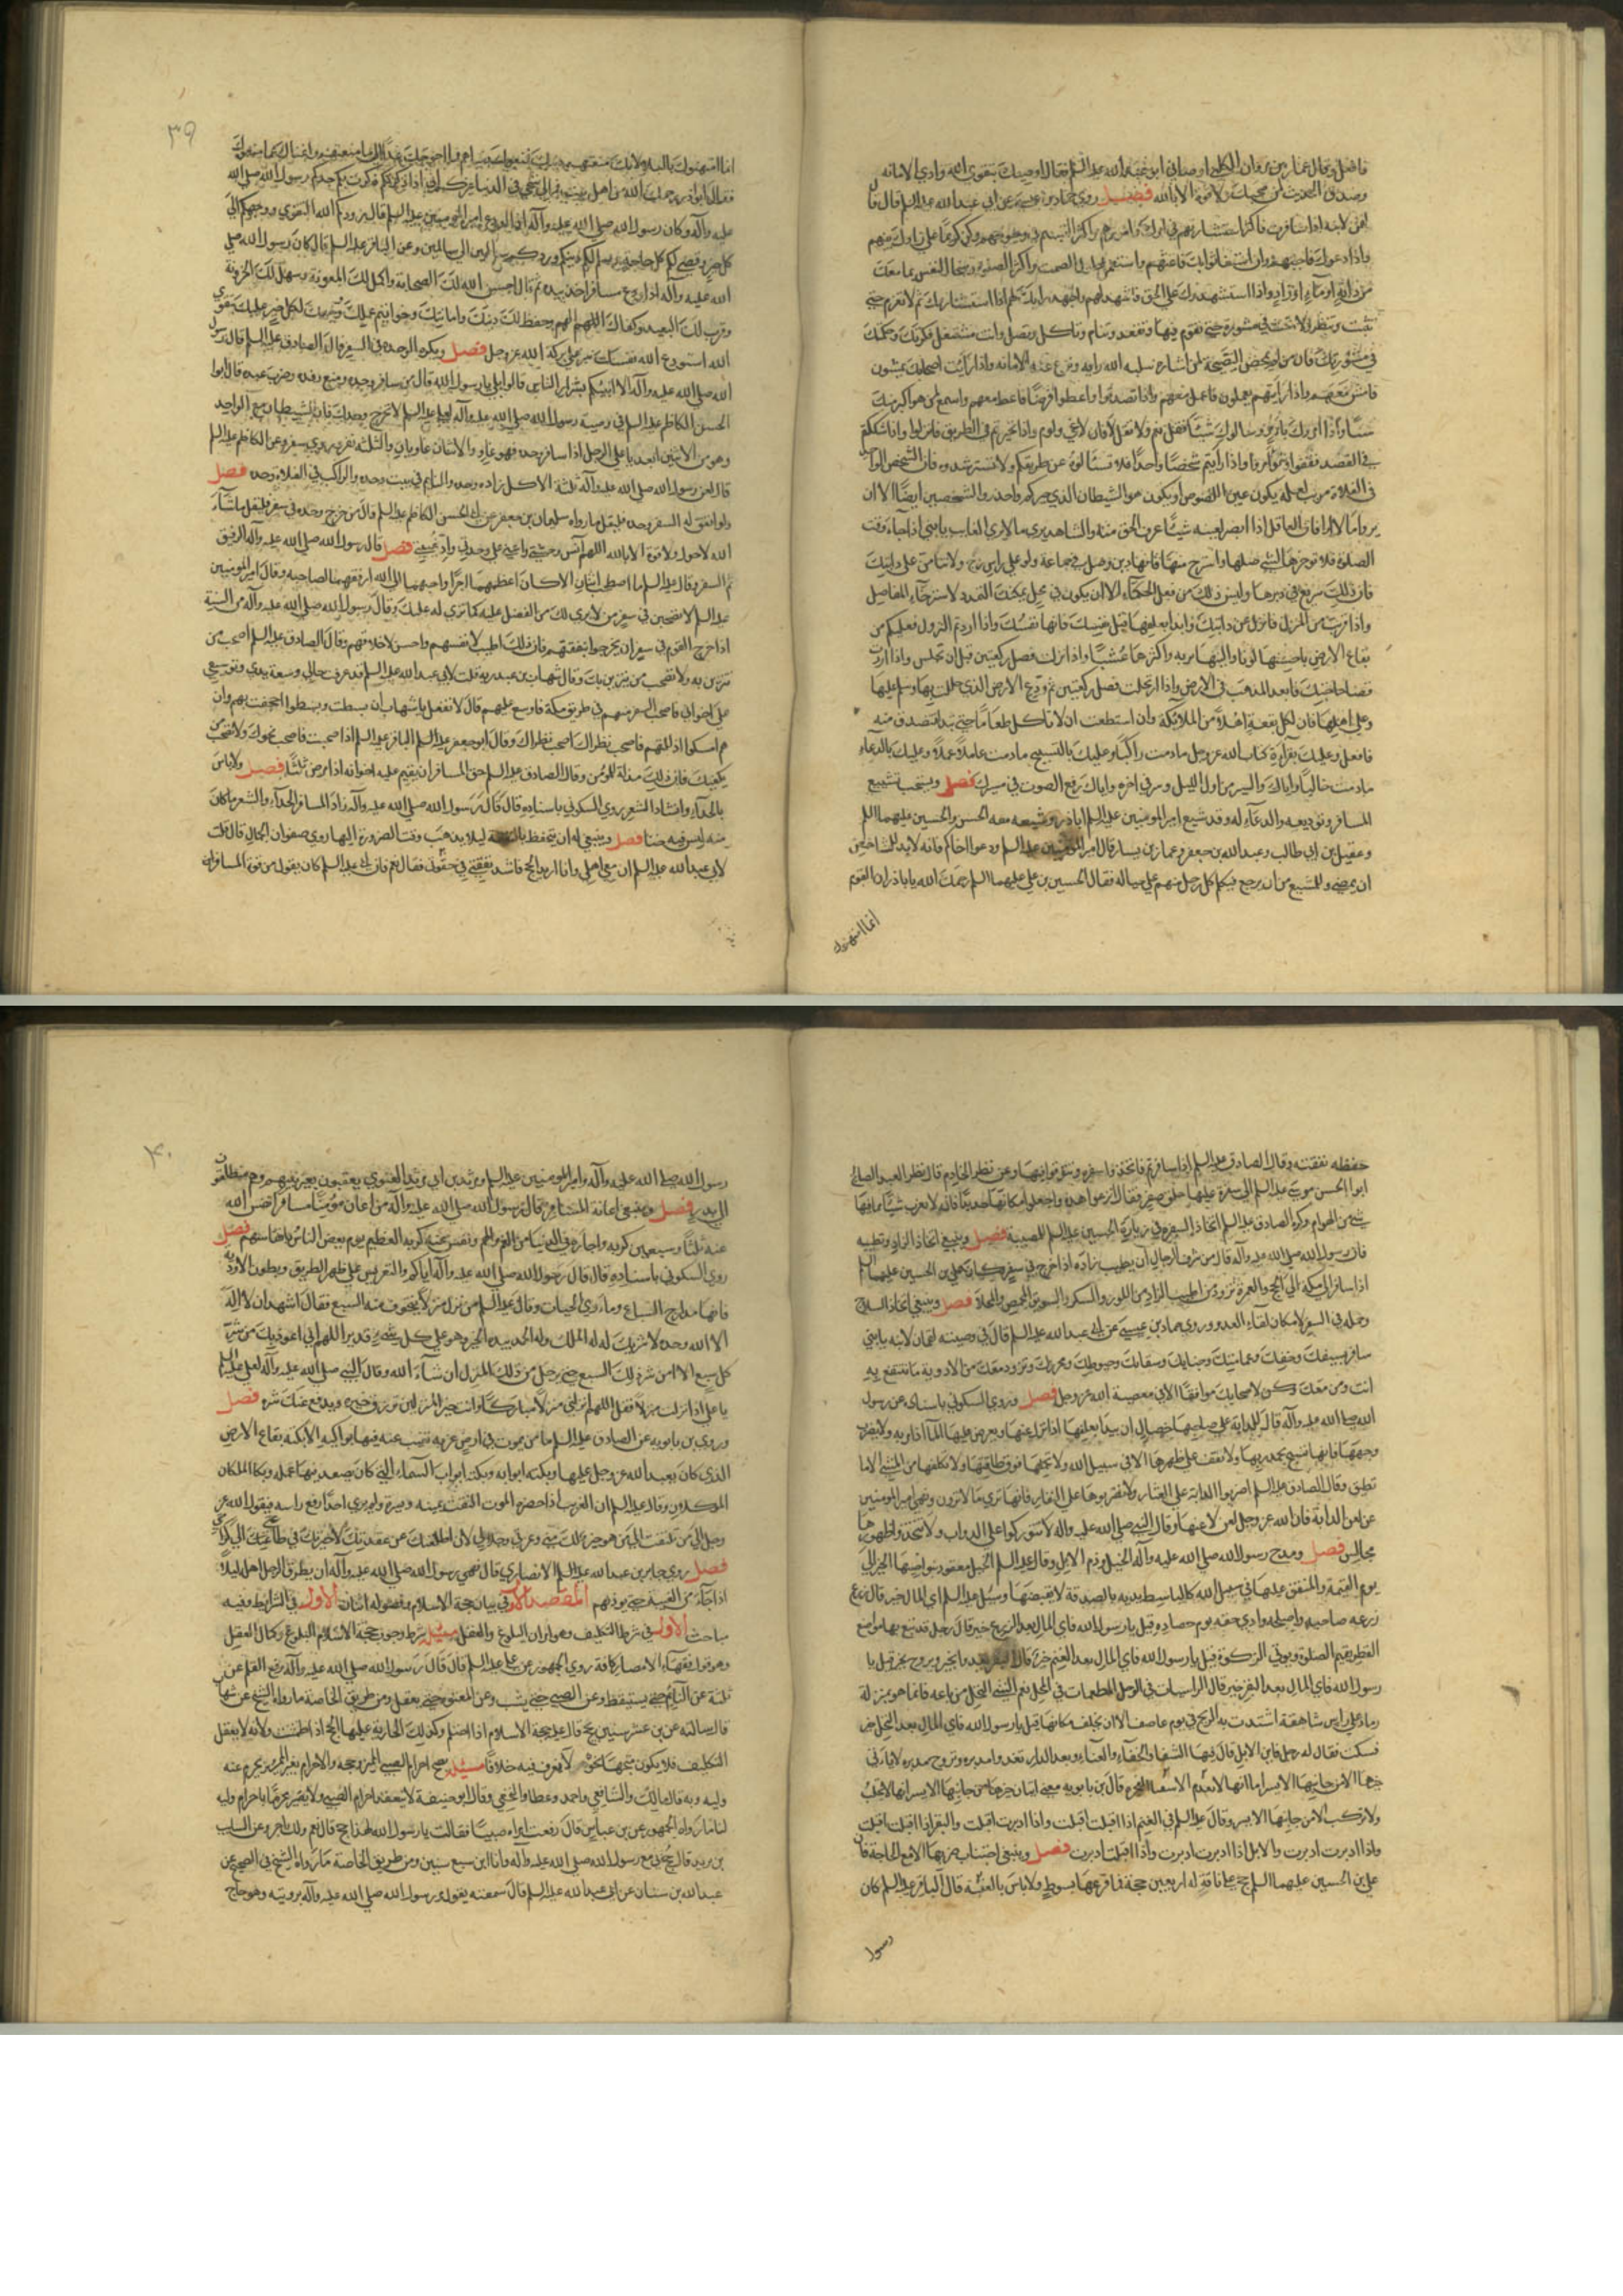 فافعل وقال عمار بن مروان الكلبي اوصاني ابو عبدالله عليه السلم فقال اوصيك بتقوى الله وادي الامانة
وصدق الحديث لمن صحبك ولا قوة الا بالله فصل روى حماد بن عيسى عن ابي عبد الله عليه السلم قال قال
لقمن لابنه اذا سافرت فاكثر استشارتهم في امرك وامورهم واكثر التبسم في وجوههم وكن كريما على زادك بينهم
واذا دعوك فاجبهم وان استعانوا بك فاعنهم واستعمل طول الصمت واكثر الصلوة وسخاء النفس بما معك
من دابة او ماء او زاد واذا استشهدوك على الحق فاشهد لهم واجهد رايك لهم اذا استشاروك ثم لا تعزم حتى
تثبت وتنظر ولا تجب في مشورة حتى تقوم فيها وتقعد وتنام وتاكل وتصلي وانت مستعمل فكرتك وحكمتك
في مشورتك فان من لم يمحض النصيحة لمن استشاره سلبه الله رايه ونزع عنه الامانة واذا رايت اصحابك يمشون
فامش معهم واذا رايتهم يعملون فاعمل معهم واذا تصدقوا واعطوا قرضا فاعط معهم واسمع لمن هو اكبر منك
سنا واذا امروك بامر وسالوك شيئا فقل نعم ولا تقل لا فان لا عي ولوم واذا تحيرتم في الطريق فانزلوا واذا شككتم
في القصد فقفوا وتوامروا واذا رايتم شخصا واحدا فلا تسئالوه عن طريقكم ولا تسترشدوه فان الشخص الواحد
في الفلاة مريب لعله يكون عين اللصوص او يكون هو الشيطان الذي حيركم واحذروا الشخصين ايضا الا ان
يروا ما لا ارى فان العاقل اذا ابصر بعينه شيئا عرف الحق منه والشاهد يرى ما لا يرى الغايب يا بني اذا جاء وقت
الصلوة فلا توخرها لشئ صلها واسترح منها فانها دين وصل في جماعة ولو على راس زج ولا تنامن على دابتك
فان ذلك سريع في دبرها وليس ذلك من فعل الحكماء الا ان يكون في محمل يمكنك التمدد لاسترخاء المفاصل
واذا قربت من المنزل فانزل عن دابتك وابدا بعلفها قبل نفسك فانها نفسك واذا اردتم النزول فعليكم من
بقاع الارض باحسنها لونا والينها تربة واكثرها عشبا واذا نزلت فصل ركعتين قبل ان تجلس واذا اردت
قضا حاجتك فابعد المذهب في الارض واذا ارتحلت فصل ركعتين ثم ودع الارض الذي حللت بها وسلم عليها
وعلى اهلها فان لكل بقعة اهلا من الملائكة وان استطعت ان لا تاكل طعاما حتى تبدا فتصدق منه
فافعل وعليك بقرآءة كتاب الله عز وجل ما دمت راكبا وعليك بالتسبيح ما دمت عاملا عملا وعليك بالدعاء
ما دمت خاليا واياك والسير من اول الليل وسر في اخره واياك ورفع الصوت في مسيرك فصل ويستحب تشييع
المسافر وتوديعه والدعاء له وقد شيع امير المومنين عليه السلم اباذر وشيعه معه الحسن والحسين عليهما السلم
وعقيل بن ابي طالب وعبدالله بن جعفر وعمار بن ياسر قال امير المومنين عليه السلم ودعوا اخاكم فانه لابد للشاخص
ان يمضي وللمشيع من ان يرجع فيكلم كل رجل منهم على حياله فقال الحسين بن علي عليهما السلم رحمك الله يا باذر ان القوم
انما امتهنوك
٣٩
انما امتهنوك بالبلاء لانك منعتهم دينك فمنعوك دنياهم فما احوجك غدا الى ما منعتهم واغناك عما منعوك
فقال ابو ذر رحمكم الله من اهل بيت فمالي شجن في الدنيا غيركم اني اذا ذكرتكم ذكرت بكم جدكم رسول الله صلى الله
عليه وآله وكان رسول الله صلى الله عليه وآله اذا ودع المومنين قال زودكم الله التقوى ووجهكم الى
كل خير وقضى لكم كل حاجة وسلم لكم دينكم ودنياكم وردكم الي سالمين وعن الباقر عليه السلم قال كان رسول الله صلى
الله عليه وآله اذا ودع مسافرا اخذ بيده ثم قال احسن الله لك الصحابة واكمل لك المعونة وسهل لك الحزونة
وقرب لك البعيد وكفاك المهم وحفظ لك دينك وامانتك وخواتيم عملك ووجهك لكل خير عليك بتقوى
الله استودع الله نفسك سر على بركة الله عز وجل فصل ويكره الوحدة في السفر قال الصادق عليه السلم قال رسول
الله صلى الله عليه وآله الا انبئكم بشرار الناس قالوا بلى يا رسول الله قال من سافر وحده ومنع رفده وضرب عبده قال ابو
الحسن الكاظم عليه السلم في وصية رسول الله صلى الله عليه وآله لعلي عليه السلم لا تخرج وحدك فان الشيطان مع الواحد
وهو من الاثنين ابعد يا علي الرجل اذا سافر وحده فهو غاو والاثنان غاويان والثلثة نفر وروي سفر وعن الكاظم عليه السلم
قال لعن رسول الله صلى الله عليه وآله ثلثة الاكل زاده وحده والنايم في بيت وحده والراكب في الفلاة وحده فصل
ولو اتفق له السفر وحده فليقل ما رواه سليمان بن جعفر عن ابي الحسن الكاظم عليه السلم قال من خرج وحده في سفر فليقل ما شآء
الله لا حول ولا قوة الا بالله اللهم آنس وحشتي واعني على وحدتي وادّ غيبتي فصل قال رسول الله صلى الله عليه وآله الرفيق
ثم السفر وقال عليه السلم ما اصطحب اثنان الا كان اعظمهما اجرا واحبهما الى الله ارفقهما لصاحبه وقال امير المومنين
عليه السلم لا تصحبن في سفر من لا يرى لك من الفضل عليه كما ترى له عليك وقال رسول الله صلى الله عليه وآله من السنة
اذا خرج القوم في سفر ان يخرجوا نفقتهم فان ذلك اطيب لانفسهم واحسن لاخلاقهم وقال الصادق عليه السلم اصحب من
تتزين به ولا تصحب من يتزين بك وقال شهاب بن عبد ربه قلت لابي عبدالله عليه السلم قد عرفت حالي وسعة يدي وتوسعي
على اخواني فاصحب النفر منهم في طريق مكة فاوسع عليهم قال لا تفعل يا شهاب ان بسطت وبسطوا اجحفت بهم وان
هم امسكوا اذللتهم فاصحب نظراك اصحب نظراك وقال ابو جعفر الباقر عليه السلم اذا صحبت فاصحب نحوك ولا تصحب من
يكفيك فان ذلك مذلة للمؤمن وقال الصادق عليه السلم حق المسافر ان يقيم عليه اخوانه اذا مرض ثلثا فصل ولا باس
بالحداء وانشاد الشعر روى السكوني باسناده قال قال رسول الله صلى الله عليه وآله زاد المسافر الحداء والشعر ما كان
منه ليس فيه خنا فصل وينبغي له ان يتحفظ بالنفقة ليلا يذهب وقت الضرورة اليها روى صفوان الجمال قال قلت
لابي عبدالله عليه السلم ان معي اهلي وانا اريد الحج فاشد نفقتي في حقوي فقال نعم فان ابي عليه السلم كان يقول من قوة المسافر ان
حفظه نفقته وقال الصادق عليه السلم اذا سافرتم فاتخذوا سفرة وتنوقوا فيها وعن نظر الخادم قال نظر العبد الصالح
ابو الحسن موسى عليه السلم الى سفرة عليها حلق صفر فقال انزعوا هذه واجعلوا مكانها حديدا فانه لا يقرب شيئا مما فيها
شئ من الهوام وكره الصادق عليه السلم اتخاذ السفرة في زيارة الحسين عليه السلم للمصيبة فصل وينبغي اتخاذ الزاد وتطييبه
قال رسول الله صلى الله عليه وآله قال من شرف الرجل ان يطيب زاده اذا خرج في سفر وكان علي بن الحسين عليهما السلم
اذا سافر الى مكة الى الحج والعمرة تزود من اطيب الزاد من اللوز والسكر والسويق المحمص والمحلا فصل وينبغي اتخاذ السلاح
وحمله في السفر لامكان لقاء العدو وروى حماد بن عيسى عن ابي عبد الله عليه السلم قال في وصية لقمان لابنه يا بني
سافر بسيفك وخفك وعمامتك وخبائك وسقائك وخيوطك ومخرزك وتزود معك من الادوية ما تنتفع به
انت ومن معك وكن لاصحابك موافقا الا في معصية الله عز وجل فصل وروى السكوني باسناده عن رسول
الله صلى الله عليه وآله قال للدابة على صاحبها خصال ان يبدا بعلفها اذا نزل عنها ويعرض عليها المآء اذا مر به ولا يضرب
وجهها فانها تسبح بحمد ربها ولا تقف على ظهرها الا في سبيل الله ولا يحملها فوق طاقتها ولا تكلفها من المشي الا ما
تطيق وقال الصادق عليه السلم اضربوا الدابة على العثار ولا تضربوها على النفار فانها ترى ما لا ترون ونهى امير المومنين
عن لعن الدابة فان الله عز وجل لعن لاعنها وقال النبي صلى الله عليه وآله لا تتوركوا على الدواب ولا تتخذوا ظهورها
مجالس فصل ومدح رسول الله صلى الله عليه وآله الخيل وذم الابل وقال عليه السلم الخيل معقود بنواصيها الخير الى
يوم القيمة والمنفق عليها في سبيل الله كالباسط يديه بالصدقة لا يقبضها وسئل عليه السلم اي المال خير قال زرع
زرعه صاحبه واصلحه وادى حقه يوم حصاده قيل يا رسول الله فاي المال بعد الزرع خير قال رجل قد تبع بها مواضع
القطر يقيم الصلوة ويوتي الزكوة قيل يا رسول الله فاي المال بعد الغنم خير قال البقر تغدو بخير وتروح بخير قيل يا
رسول الله فاي المال بعد البقر خير قال الراسيات في الوحل المطعمات في المحل نعم الشئ النخل من باعه فانما هو بمنزلة
رماد على راس شاهقة اشتدت به الريح في يوم عاصف الا ان يخلف مكانها قيل يا رسول الله فاي المال بعد النخل خير
فسكت فقال له رجل فاين الابل قال فيها الشقا والجفآء والعناء وبعد الدار تغدو مدبرة وتروح مدبرة لا ياتي
خيرها الا من جانبها الايسر اما انها لا تعدم الاشقياء الفجرة قال بن بابويه معنى
ولا تركب الا من جانبها الايسر وقال عليه السلم في الغنم اذا اقبلت اقبلت واذا ادبرت اقبلت والبقر اذا اقبلت اقبلت
واذا ادبرت ادبرت والابل اذا ادبرت ادبرت واذا اقبلت ادبرت فصل وينبغي اجتناب ضربها الا مع الحاجة فان
علي بن الحسين عليهما السلم حج على ناقة له اربعين حجة فما قرعها بسوط ولا باس بالعقبة قال الباقر عليه السلم كان
رسول
٤٠
رسول الله صلى الله عليه وآله وامير المومنين عليه السلم ومرثد بن ابي مرثد الغنوي يعقبون بعيرا بينهم وهم منطلقون
الى بدر فصل وينبغي اعانة المسافر قال رسول الله صلى الله عليه وآله من اعان مؤمنا مسافرا نفس الله
عنه ثلثا وسبعين كربة واجاره في الدنيا من الغم والهم ونفس عنه كربه العظيم يوم يغص الناس بانفاسهم فصل
روى السكوني باسناده قال قال رسول الله صلى الله عليه وآله اياكم والتعريس على ظهر الطريق وبطون الاودية
فانها مدارج السباع وماوى الحيات وقال عليه السلم من نزل منزلا يتخوف منه السبع فقال اشهد ان لا اله
الا الله وحده لا شريك له له الملك وله الحمد بيده الخير وهو على كل شئ قدير اللهم اني اعوذ بك من شر
كل سبع الا امن شر ذلك السبع حتى يرحل من ذلك المنزل ان شاء الله وقال النبي صلى الله عليه وآله لعلي عليه السلم
يا علي اذا نزلت منزلا فقل اللهم انزلني منزلا مباركا وانت خير المنزلين ترزق خيره ويدفع عنك شره فصل
وروى بن بابويه عن الصادق عليه السلم ما من مومن يموت في ارض غربة تغيب عنه فيها بواكيه الا بكته بقاع الارض
الذي كان يعبد الله عز وجل عليها وبكته اثوابه وبكته ابواب السماء التي كان يصعد فيها عمله وبكا الملكان
الموكلان وقال عليه السلم ان الغريب اذا حضره الموت التفت يمينه ويسرة ولم ير احدا رفع راسه فيقول الله عز
وجل الى من تلتفت الى من هو خير لك مني وعزتي وجلالي لان اطلقتك عن عقدتك لاصيرنك في طاعتي
فصل روى جابر بن عبد الله الانصاري قال نهى رسول الله صلى الله عليه وآله ان يطرق الرجل اهله ليلا
اذا جآء من الغيبة حتى يوذنهم المقصد الاول في بيان حجة الاسلام وفصوله اثنان الاول في الشرايط وفيه
مباحث الاول في شرط التكليف وهو امران البلوغ والعقل مسئلة شرط وجوب حجة الاسلام البلوغ وكمال العقل
وهو قول فقهاء الامصار كافة روى الجمهور عن علي عليه السلم قال قال رسول الله صلى الله عليه وآله رفع القلم عن
ثلثة عن النايم حتى يستيقظ وعن الصبي حتى يشب وعن المعتوه حتى يعقل ومن طريق الخاصة ما رواه الشيخ عن شهاب
قال سالته عن بن عشر سنين يحج قال عليه حجة الاسلام اذا احتلم وكذلك الجارية عليها الحج اذا طمثت ولانه لا يعقل
التكليف فلا يكون متوجها نحوه لا نعرف فيه خلافا مسئلة يصح احرام الصبي المميز وحجه والاحرام بغير المميز يحرم عنه
وليه وبه قال مالك والشافعي واحمد وعطا والنخعي وقال ابو حنيفة لا ينعقد احرام الصبي ولا يصير محرما باحرام وليه
لنا ما رواه الجمهور عن بن عباس قال رفعت امراه صبيا فقالت يا رسول الله الهذا حج قال نعم ولك اجر وعن السايب
بن يزيد قال حج بي مع رسول الله صلى الله عليه وآله وانا ابن سبع سنين ومن طريق الخاصة ما رواه الشيخ في الصحيح عن
عبدالله بن سنان عن ابي عبد الله عليه السلم قال سمعته يقول مر رسول الله صلى الله عليه وآله برويثة وهو حاج